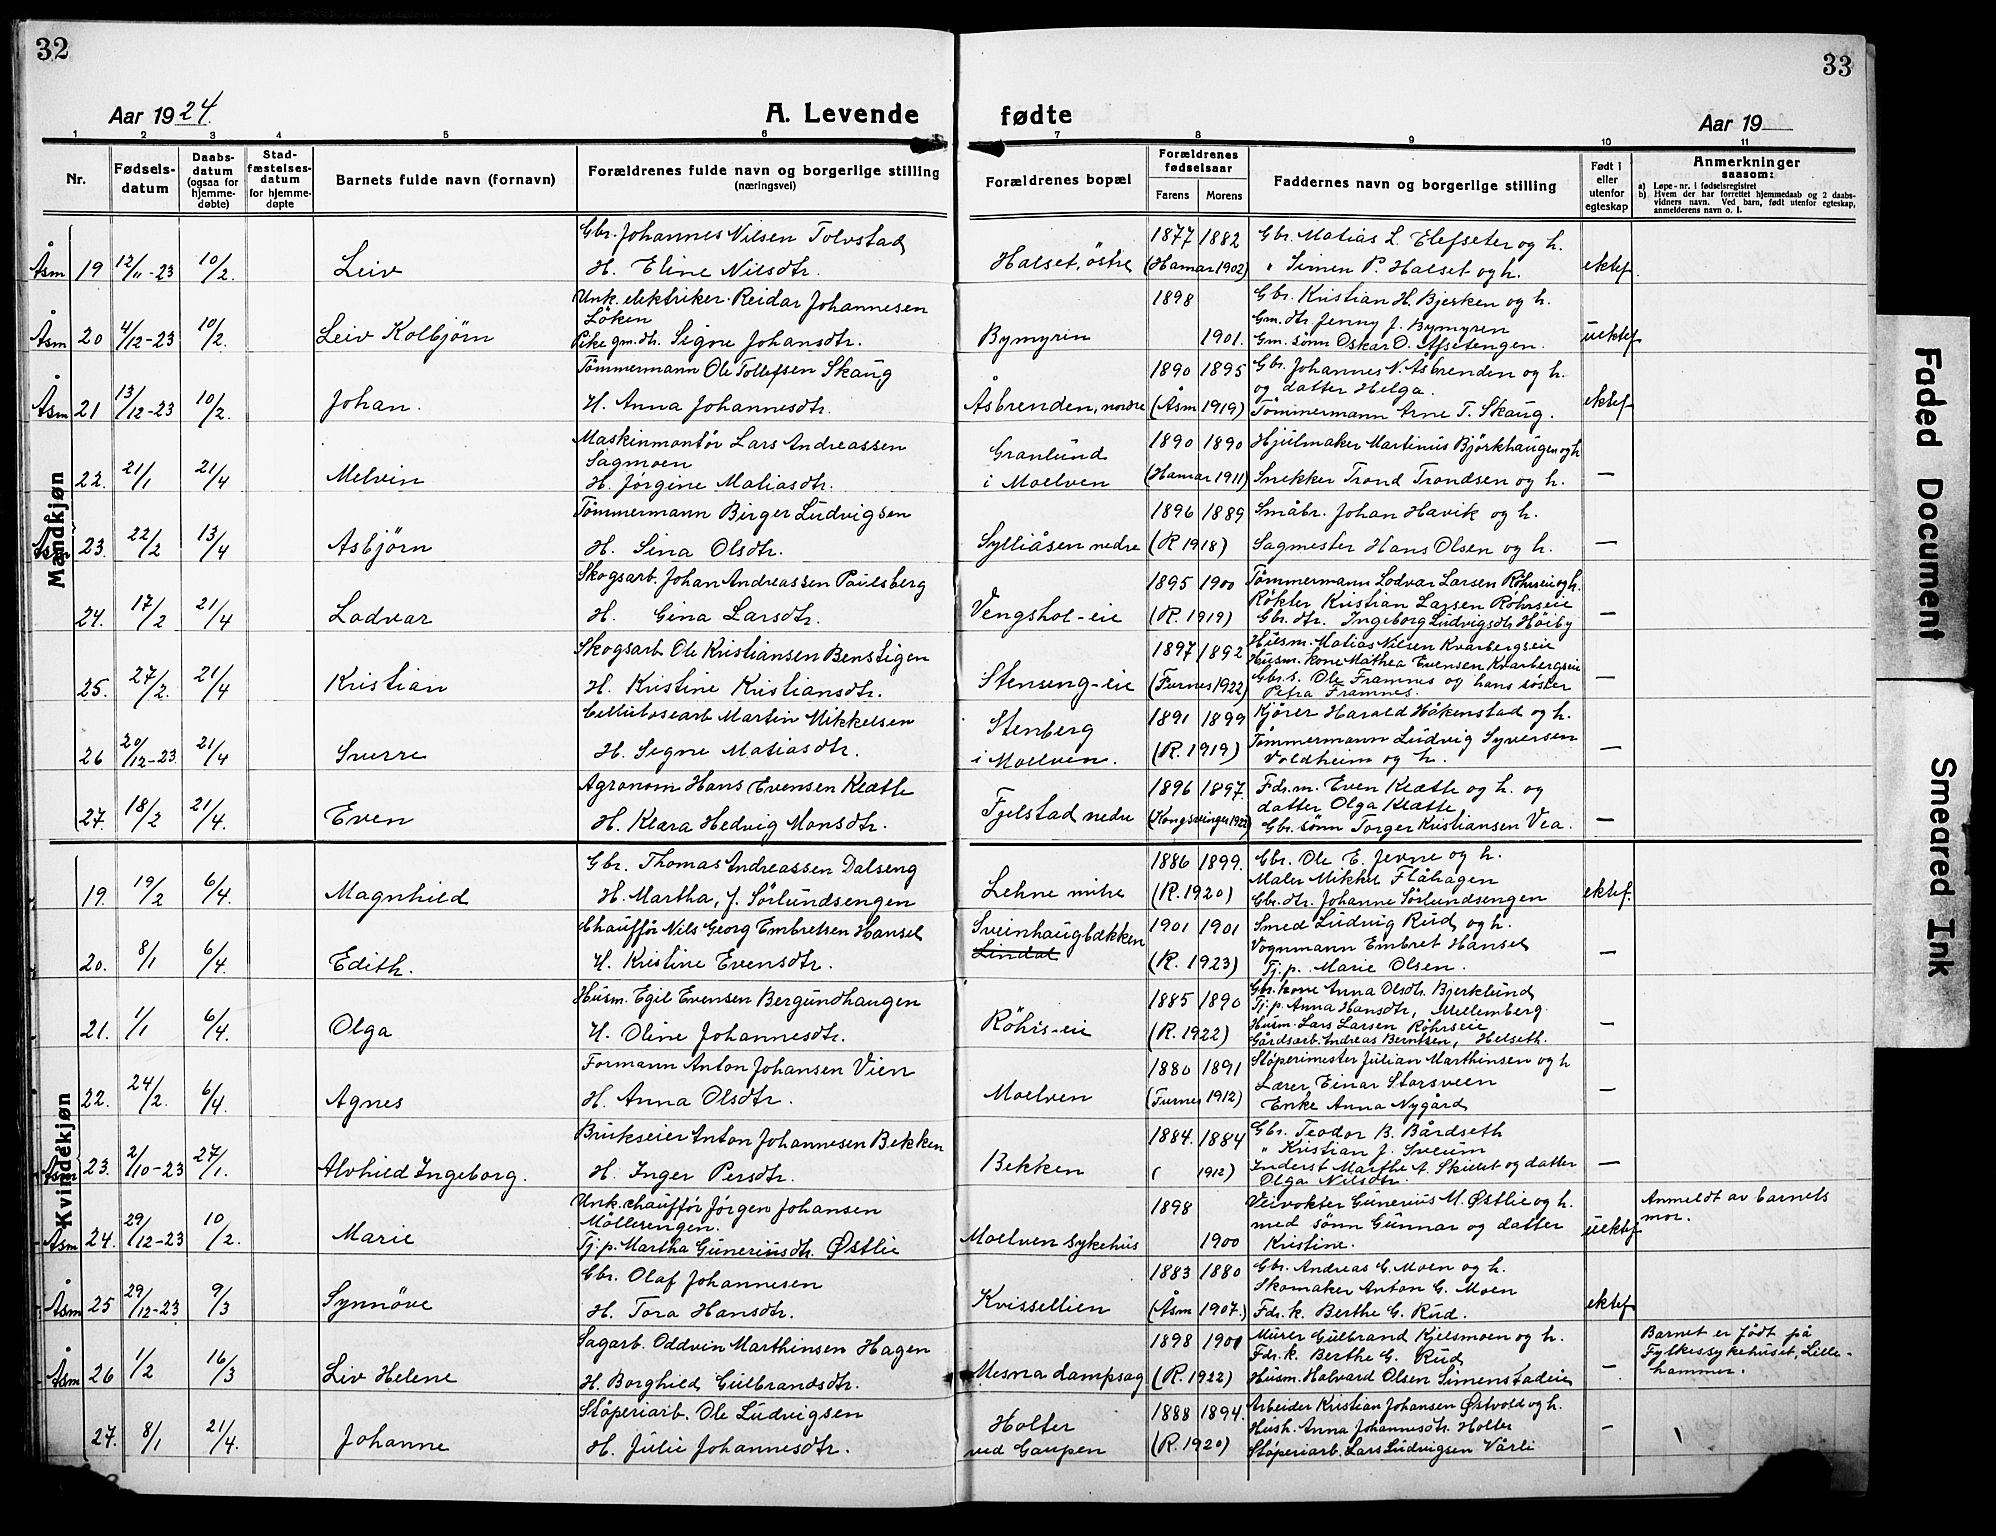 32
33
Aar 1924
A. Levende
fødte
Aar 19
1 2 3 4 5 6 7 8 9 10 11
Nr.
Fødsels-
datum
Daabs-
datum
(ogsaa for
hjemme-
døbte)
Stad-
fæstelses-
datum
for hjemme-
døpte
Barnets fulde navn (fornavn)
Forældrenes fulde navn og borgerlige stilling
(næringsvei)
Forældrenes bopæl
Forældrenes
fødselsaar
Farens Morens
Faddernes navn og borgerlige stilling
Født i
eller
utenfor
egteskap
Anmerkninger
saasom:
a) Løpe-nr. i fødselsregistret
b) Hvem der har forrettet hjemmedaab og 2 daabs-
vidners navn. Ved barn, født utenfor egteskap,
anmelderens navn o. l.
Mandkjøn
Åsm 19 12/11-23 10/2 Leiv
Gbr. Johannes Nilsen Tolvstad
H. Eline Nilsdtr.
Halset, östre
1877 1882
(Hamar 1902)
Gbr. Matias L. Elefseter og h.
" Simen P. Halset og h.
ektef.
Åsm 20 4/12-23 10/2. Leiv Kolbjörn
Unk. elektriker Reidar Johannesen
Löken
Pike gm.dtr. Signe Johansdtr.
Bymyrin
1898
1901.
Gbr. Kristian H. Bjerken og h.
Gm. dtr. Jenny J. Bymyren
Gm. sönn Oskar O. Afsetengen.
uektef.
Åsm 21 13/12-23 10/2. Johan.
Tömmermann Ole Tollefsen Skaug
H. Anna Johannesdtr.
Åsbrenden, nordre
1890 1895
(Åsm 1919)
Gbr. Johannes N. Åsbrenden og h.
og datter Helga.
Tömmermann Arne T. Skaug.
ektef.
22. 21/1 21/4 Melvin
Maskinmontör Lars Andreassen
Sagmoen
H. Jørgine Matiasdtr.
Granlund
i Moelven
1890 1890
(Hamar 1911)
Hjulmaker Martinus Björkhaugen og h
Snekker Trond Trondsen og h.
—
23. 22/2 13/4 Asbjörn
Tömmermann Birger Ludvigsen
H. Sina Olsdtr.
Sylliåsen nedre
1896 1889
(R 1918)
Småbr. Johan Havik og h.
Sagmester Hans Olsen og h.
—
24. 17/2 21/4 Lodvar
Skogsarb. Johan Andreassen Paulsberg
H. Gina Larsdtr.
Vengshol-eie
1895 1900
(R. 1919)
Tömmermann Lodvar Larsen Röhrseie og h.
Røkter Kristian Larsen Röhrseie
Gbr. dtr. Ingeborg Ludvigsdtr. Höiby
—
25. 27/2. 21/4 Kristian
Skogsarb. Ole Kristiansen Benstigen
H. Kristine Kristiansdtr.
Stenseng-eie
1897 1892
(Furnes 1922)
Husm. Matias Nilsen Kvarbergseie
Husm. kone Mathea Evensen Kvarbergseie
Gbr.s. Ole Framnes og hans söster
Petra Framnes.
—
26 20/12-23. 21/4 Sverre
Cellulosearb Martin Mikkelsen
H. Signe Matiasdtr.
Stenberg
i Moelven.
1891 1899
(R. 1919)
Kjörer Harald Håkenstad og h.
Tömmermann Ludvig Syversen
Voldheim og h.
—
27. 18/2 21/4. Even
Agronom Hans Evensen Klætte
H. Klara Hedvig Monsdtr.
Fjelstad nedre
1896 1897.
(Kongsvinger 1922)
Fdr.m. Even Klætte og h. og
datter Olga Klætte
Gbr. sönn Torger Kristiansen Vea.
—
Kvindekjøn
19. 19/2 6/4. Magnhild
Gbr. Thomas Andreassen Dalseng
H. Martha, J. Sörlundsengen
Lehne mitre
1886 1899.
(R. 1920)
Gbr. Ole E. Jevne og h.
Maler Mikkel Flåhagen
Gbr. dtr. Johanne Sörlundsengen
ektef.
20. 8/1 6/4. Edith.
Chaufför Nils Georg Embretsen Hansel
H. Kristine Evensdtr.
Sveinhaugbækken
Lindal
1901 1901
(R. 1923)
Smed Ludvig Rud og h.
Vognmann Embret Hansel
Tj.p. Marie Olsen.
—
21. 1/1 6/4. Olga
Husm. Egil Evensen Bergundhaugen
H. Oline Johannesdtr.
Röhrs-eie
1885 1890
(R. 1922)
Gbr. kone Anna Olsdtr. Bjerklund
Tj.p. Anna Hansdtr, Mellemberg
Husm. Lars Larsen Röhrseie
Gårdsarb. Andreas Berntsen, Helseth.
—
22. 24/2. 6/4. Agnes
Formann Anton Johansen Vien
H. Anna Olsdtr.
Moelven
1880 1891
(Furnes 1912)
Stöperimester Julian Marthinsen og h
Lærer Einar Storsveen
Enke Anna Nygård
—
Åsm 23. 2/10-23 27/1. Alvhild Ingeborg.
Brukseier Anton Johannesen Bekken
H. Inger Persdtr.
Bekken
1884. 1884
( 1912)
Gbr. Teodor B. Bårdseth
" Kristian J. Sveum
Inderst Marthe A. Skielet og datter
Olga Nilsdtr.
—
Åsm 24. 29/12-23 10/2. Marie
Unk. chaufför Jörgen Johansen
Möllerengen.
Tj.p. Martha Guneriusdtr. Østlie
Moelven sykehus
1898
1900
Veivokter Gunerius M. Østlie og h.
med sönn Gunnar og datter
Kristine.
uektef.
Anmeldt av barnets
mor.
Åsm 25 29/12-23 9/3 Synnöve
Gbr. Olaf Johannesen
H. Tora Hansdtr.
Kvissellien
1883 1880
(Åsm 1907.)
Gbr. Andreas G. Moen og h.
Skomaker Anton G. Moen
Fdr. k. Berthe G. Rud.
ektef.
Åsm 26 1/2 16/3 Liv Helene
Sagarb. Oddvin Marthinsen Hagen
H. Borghild Gulbrandsdtr.
Mesna dampsag
1898 1901
(R. 1922)
Murer Gulbrand Kjelsmoen og h.
Fdr. k. Berthe G. Rud
Husm. Halvard Olsen Simenstadeie
—
Barnet er födt på
Fylkessykehuset, Lille-
hammer.
27. 8/1 21/4. Johanne
Stöperiarb. Ole Ludvigsen
H. Julie Johannesdtr.
Holter
ved Gaupen
1888 1894.
(R. 1920)
Arbeider Kristian Johansen Østvold og h.
Hush. Anna Johannesdtr. Holter
Stöperiarb. Lars Ludvigsen Vårli
—
Faded Document
Smeared Ink